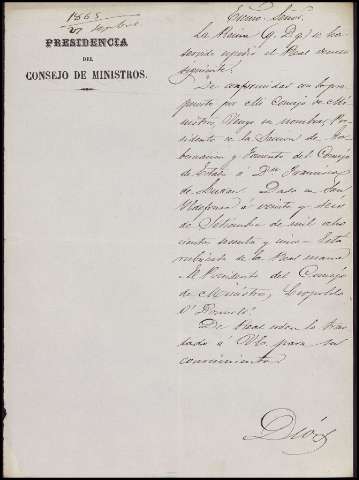 1865
27 Septbre
PRESIDENCIA
DEL
CONSEJO DE MINISTROS.
Excmo. Señor.
La Reina (q. D. g.) se ha
servido expedir el Real decreto
siguiente.
De conformidad con lo pro-
puesto por Mi Consejo de Mi-
nistros, Vengo en nombrar Pre-
sidente de la Seccion de Go-
bernacion y Fomento del Consejo
de Estado á Dn. Francisco
de Luxan. Dado en San
Ildefonso á veinte y seis
de Setiembre de mil ocho
cientos sesenta y cinco. Está
rubricado de la Real mano
El Presidente del Consejo
de Ministros, Leopoldo
O'Donnell.
De Real orden lo tras-
lado á V.E. para su
conocimiento
Dios